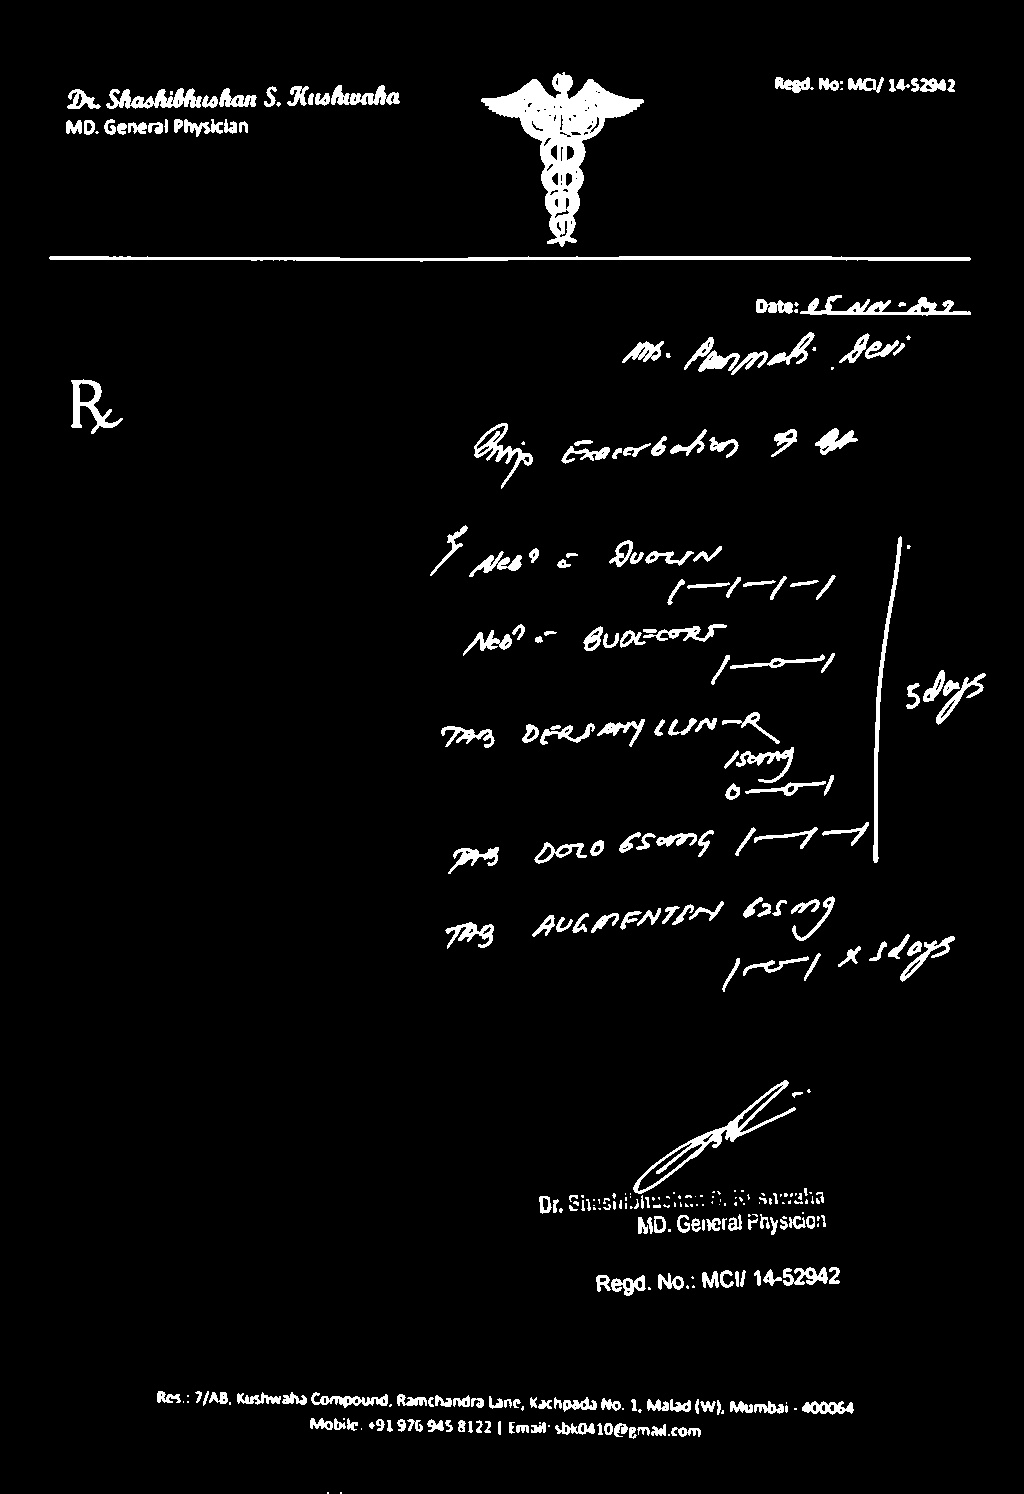 Dr. Shashibhushan S. Kushwaha
MD. General Physician
Regd. No: MCI/ 14-52942
Date: 05 Nov
Ms. Devi
Rx
Exacerbation of
Neb? c̄ DUOLIN
1—1—1—1
Neb? c̄ BUDECORT
1—0—1
TAB DERIPHYLLIN-R
150mg
0—0—1
TAB DOLO 650mg 1—1—1
5 days
TAB AUGMENTIN 625 mg
1—0—1 x 5 days
Dr. Shashibhushan S. Kushwaha
MD. General Physician
Regd. No.: MCI/ 14-52942
Res.: 7/AB, Kushwaha Compound, Ramchandra Lane, Kachpada No. 1, Malad (W), Mumbai - 400064
Mobile: +91 976 945 8122 | Email: sbk0410@gmail.com